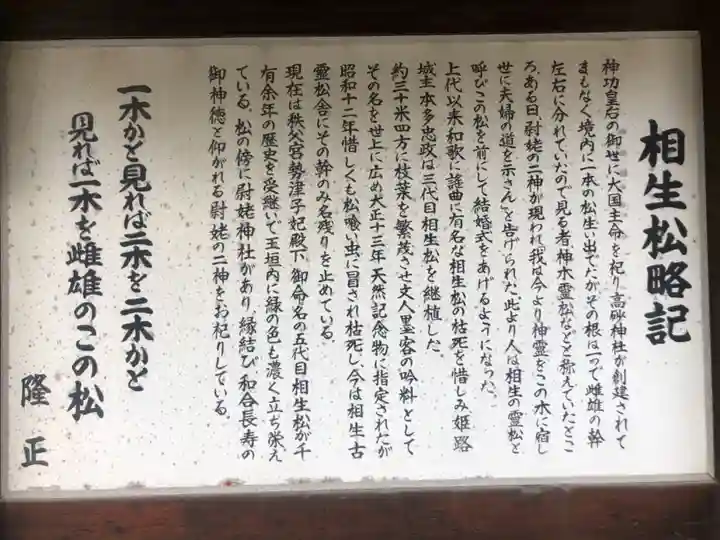 相生松略記
神功皇后の御世に大国主命を祀り高砂神社が創建されて
まもなく境内に一本の松生い出でたがその根は一つで雌雄の幹
左右に分れていたので見る者神木霊松などと称えていたとこ
ろ、ある日、尉姥の二神が現われ「我は今より神霊をこの木に宿し
世に夫婦の道を示さん」と告げられた。此より人は相生の霊松と
呼びこの松を前にして結婚式をあげるようになった。
上代以来和歌に謡曲に有名な相生松の枯死を惜しみ姫路
城主本多忠政は三代目相生松を継植した。
約三十米四方に枝葉を繁茂させ文人墨客の吟料として
その名を世上に広め大正十三年天然記念物に指定されたが
昭和十二年惜しくも松喰い虫に冒され枯死し今は相生古
霊松舎にその幹のみ名残りを止めている。
現在は秩父宮勢津子妃殿下、御命名の五代目相生松が千
有余年の歴史を受継いで玉垣内に緑の色も濃く立ち栄え
ている。松の傍に尉姥神社があり、縁結び和合長寿の
御神徳と仰がれる尉姥の二神をお祀りしている。
一木かと見れば二木を二木かと
見れば一木を雌雄のこの松
隆正